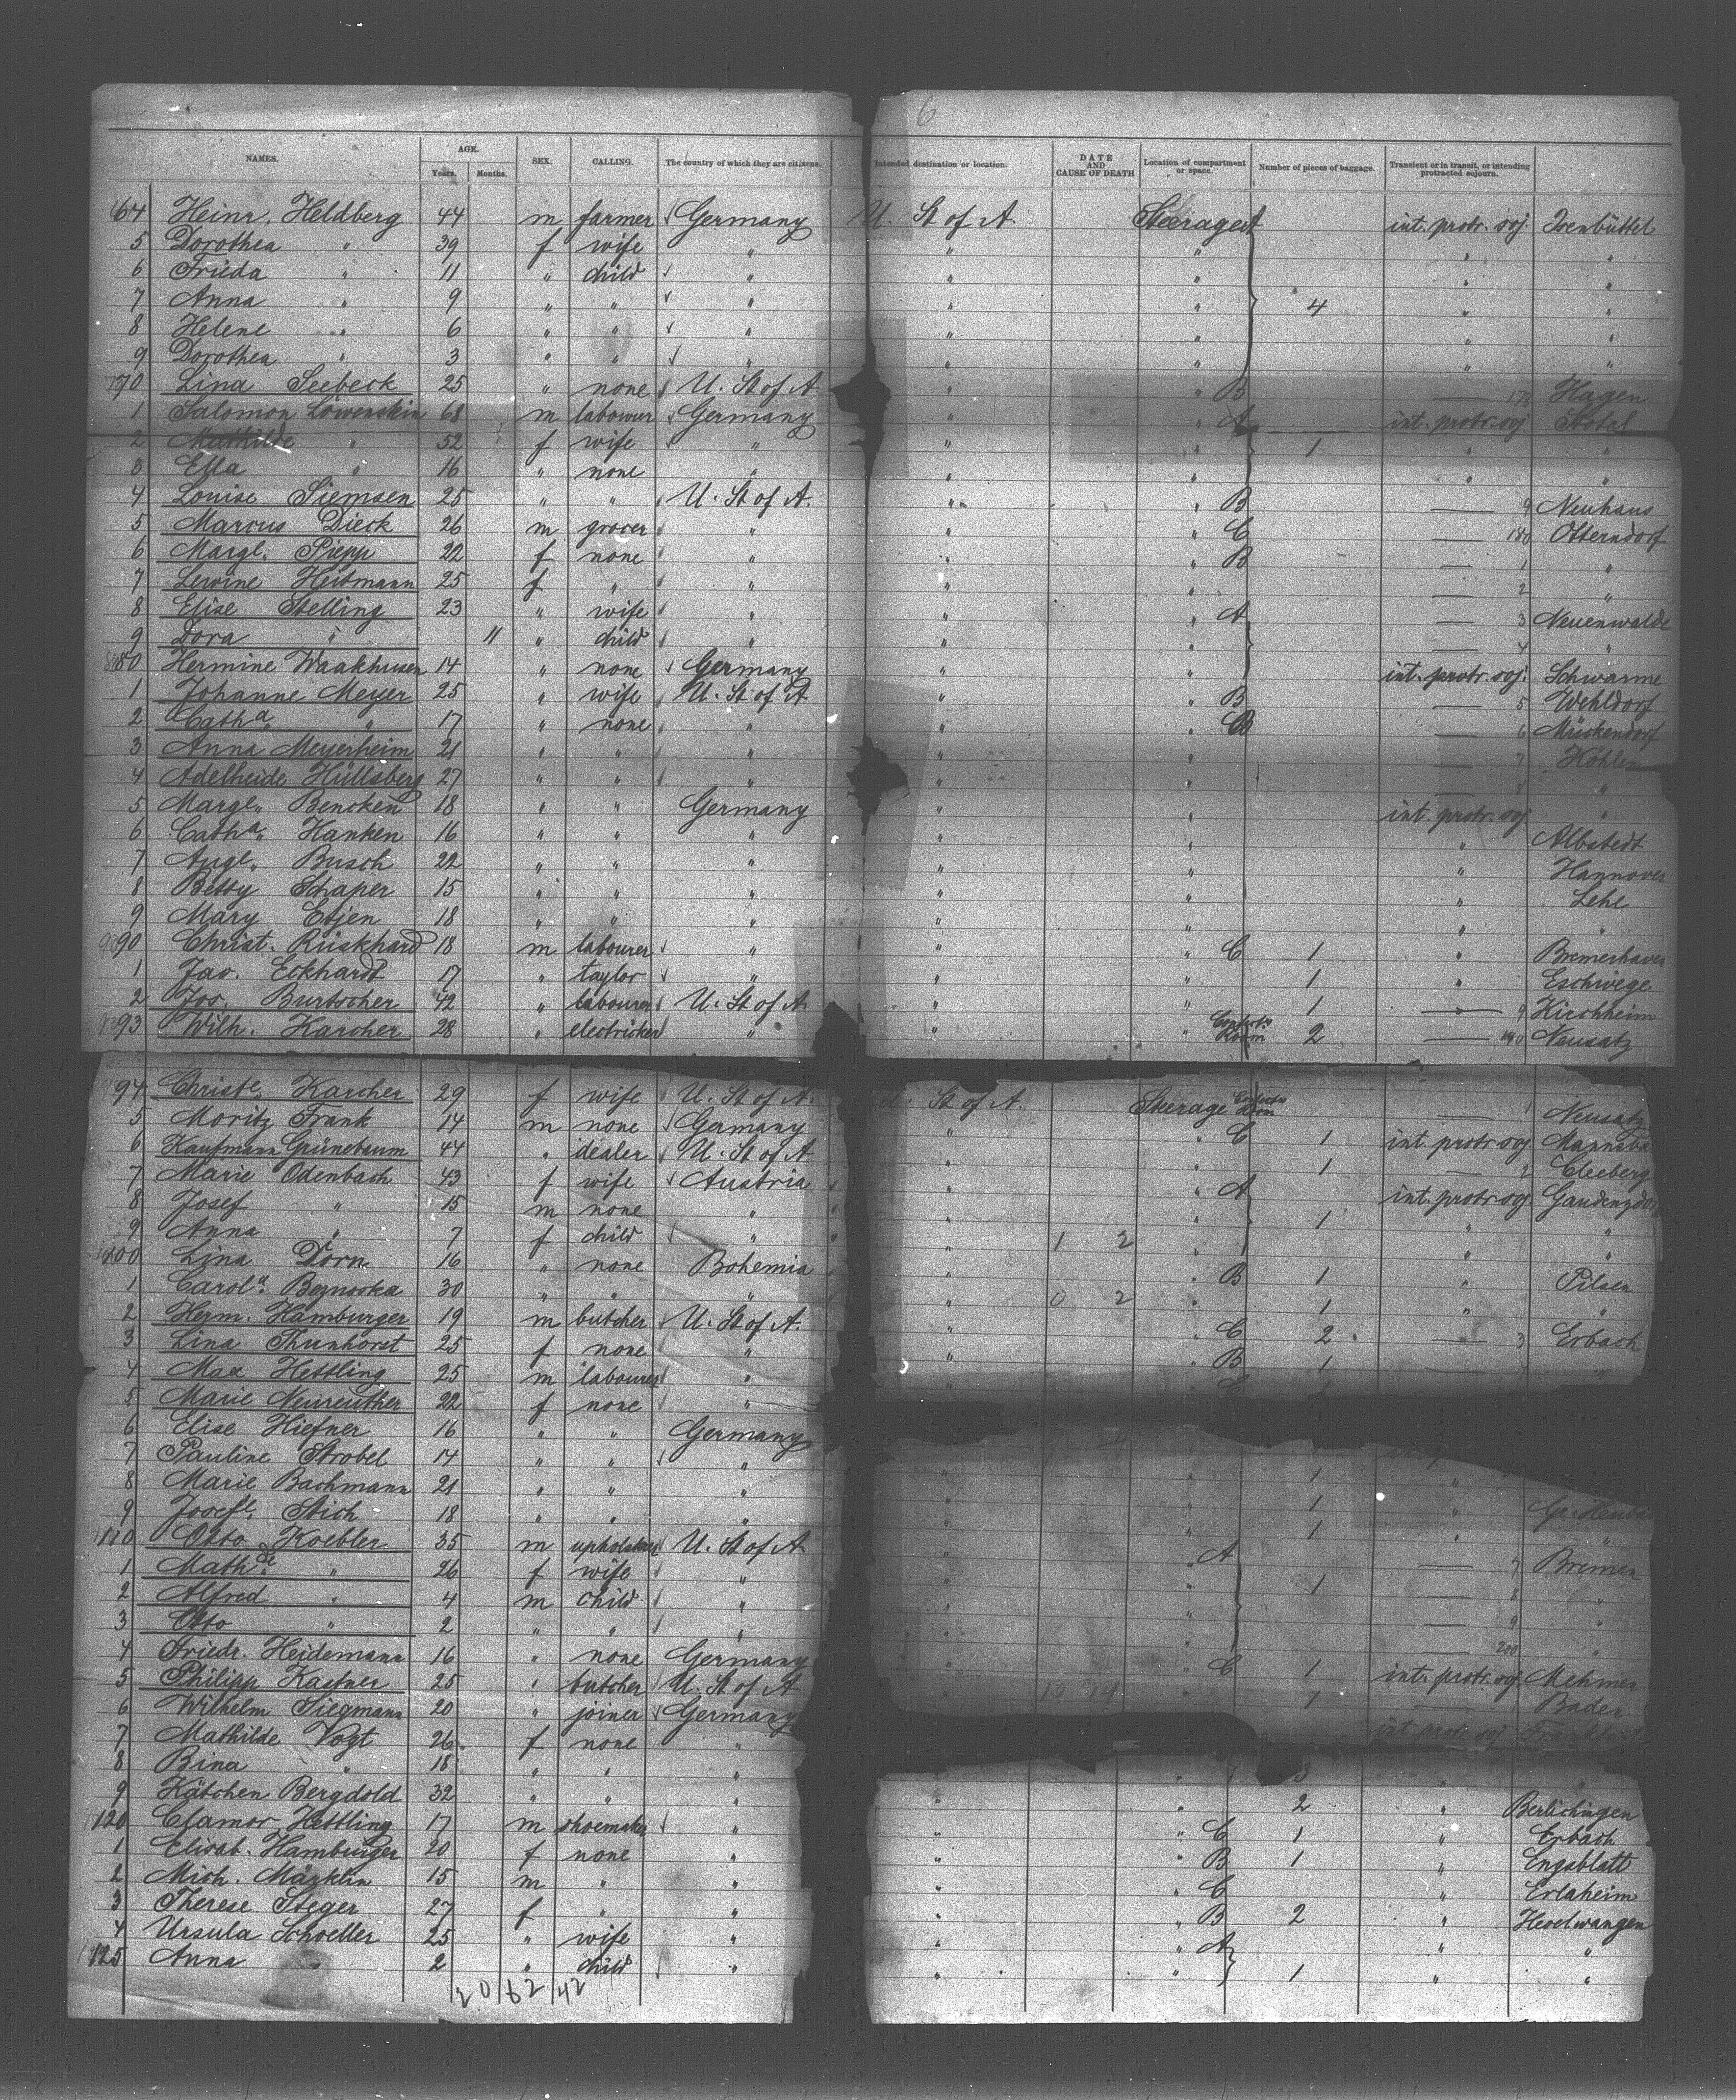 6
NAMES. AGE. Years. Months. SEX. CALLING. The country of which they are citizens. Intended destination or location. DATE AND CAUSE OF DEATH Location of compartment or space. Number of pieces of baggage. Transient or in transit, or intending protracted sojourn.
64 Heinr. Heldberg 44 m farmer Germany U. St of A. Steerage A int. protr. soj. Isenbüttel
5 Dorothea " 39 f wife " " " " "
6 Frieda " 11 " child " " " " "
7 Anna " 9 " " " " " 4 " "
8 Helene " 6 " " " " " " "
9 Dorothea " 3 " " " " " " "
70 Lina Seebeck 25 " none U. St of A. " " B — 178 Hagen
1 Salomon Löwenstein 68 m labourer Germany " " A int. protr. soj. Stotel
2 Mathilde " 52 f wife " " " 1 " "
3 Ella " 16 " none " " " " "
4 Louise Siemsen 25 " " U. St of A. " " B — 9 Neuhaus
5 Marcus Dieck 26 m grocer " " " C — 180 Otterndorf
6 Margt. Piepp 22 f none " " " B — 1 "
7 Lewine Heitmann 25 f " " " " — 2 "
8 Elise Stelling 23 " wife " " " A — 3 Neuenwalde
9 Dora " 11 " child " " " — 4 "
80 Hermine Waakhusen 14 " none Germany " " int. protr. soj. Schwarme
1 Johanne Meyer 25 " wife U. St of A. " " B — 5 Wehldorf
2 Catha. " 17 " none " " " B — 6 Mückendorf
3 Anna Meyerheim 21 " " " " " — 7 Köhlen
4 Adelheide Hüllsberg 27 " " " " " — 8 "
5 Margt. Bencken 18 " " Germany " " int. protr. soj. "
6 Catha. Hanken 16 " " " " " " Albstedt
7 Augt. Busch 22 " " " " " " Hannover
8 Betty Schaper 15 " " " " " " Lehe
9 Mary Etjen 18 " " " " " " "
90 Christ. Rüskhard 18 m labourer " " " C 1 " Bremerhaven
1 Jac. Eckhardt 17 " taylor " " " 1 " Eschwege
2 Jos. Burtscher 42 " labourer U. St of A. " " 1 — 9 Kirchheim
93 Wilh. Karcher 28 " electricker " " Room 2 — 190 Neusatz
94 Christe. Karcher 29 f wife U. St of A. U. St of A. Steerage — 1 Neusatz
5 Moritz Frank 14 m none Gemany " " C 1 int. protr. soj.
6 Kaufmann Grünebaum 44 " dealer U. St of A. " " 1 — 2 Cleeberg
7 Marie Odenbach 43 f wife Austria " " A int. protr. soj. Gaudenzdorf
8 Josef " 15 m none " " " 1 " "
9 Anna " 7 f child " " 1 2 " " "
100 Lina Dorn 16 " none Bohemia " " B 1 " Pilsen
1 Carola. Beznoska 30 " " " " 0 2 " 1 " "
2 Herm. Hamburger 19 m butcher U. St of A. " " C 2 — 3 Erbach
3 Lina Thunhorst 25 f none " " " B 1 —
4 Max Hettling 25 m labourer "
5 Marie Neureuther 22 f none "
6 Elise Hiefner 16 " " Germany
7 Pauline Strobel 14 " " " " " 1 "
8 Marie Bachmann 21 " " " " " 1 "
9 Josefe. Stich 18 " " " " " 1 " "
110 Otto Koebler 35 m upholsterer U. St of A. " " A — 7 Bremen
1 Mathde. " 26 f wife " " " 1 — 8 "
2 Alfred " 4 m child " " " — 9 "
3 Otto " 2 " " " " " — 200 "
4 Friedr. Heidemann 16 " none Germany " " C 1 int. protr. soj. Mehmen
5 Philipp Kastner 25 " butcher U. St of A. " " 1 — Baden
6 Wilhelm Siegmann 20 " joiner Germany int. protr. soj. Frankfurt
7 Mathilde Vogt 26 f none "
8 Bina " 18 " " " " " 3 " "
9 Kätchen Bergdold 32 " " " " " 2 " Berlichingen
120 Clamor Hettling 17 m shoemaker " " " C 1 " Erbach
1 Elisab. Hamburger 20 f none " " " B 1 " Engsblatt
2 Mich. Märklin 15 m " " " " C " Erlaheim
3 Therese Steger 27 f " " " " B 2 " Heselwangen
4 Ursula Schoeller 25 " wife " " " A " "
125 Anna " 2 " child " " " 1 " "
20 62 42